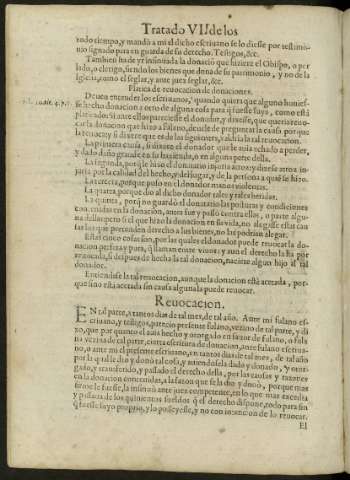 Tratado VII. de los
todo tiempo, y mandò a mi el dicho escriuano se lo diesse por testimo-
nio signado para en guarda de su derecho. Testigos, &c.
Tambien ha de yr insinuada la donaciõ que hiziere el Obispo, o per
lado, o clerigo, siendo los bienes que dona de su patrimonio, y no de la
Iglesia, como el seglar, y ante juez seglar, &c.
Platica de reuocacion de donaciones.
Deuen entender los escriuanos, quando quiera que alguno houies-
se hecho donacion a otro de alguna cosa para q̃ fuesse suya, como està
platicado: si ante ellos pareciesse el donador, y dixesse, que queria reuo-
car la donacion que hizo a Fulano, deuele de preguntar la causa por que
la reuoca: y si dixere que es de las siguientes, valdra la tal reuocacion.
La primera causa, si dixere que el donador que le auia echado a perder,
y dado daño grande en su hazienda, o en alguna parte della.
La segunda, porq̃ le hizo el donatario injuria atroz: y diga se atroz in-
juria por la calidad del hecho, y del lugar, y de la persona a quiẽ se hizo.
La tercera, porque puso en el donador manos violentas.
La quarta, porque dio al dicho donador tales y tales heridas.
La quinta, porq̃ no guardò el donatario las posturas y condiciones
contenidas en la donacion, antes fue y passò contra ellos, o parte algu-
na dellas: pero si el que hizo la donacion en su vida, no alegasse estas cau
sas los que pretenden derecho a sus bienes, no las podrian alegar.
Estas cinco cosas son, por las quales el donador puede reuocar la do-
nacion perfeta y pura, q̃ llaman entre viuos: y aun el derecho la ha por
reuocada, si despues de hecha la tal donacion, naciere algun hijo al tal
donador.
Entiendese la tal reuocacion, aun que la donacion estè acetada, por-
que sino està acetada sin causa alguna la puede reuocar.
Reuocacion.
EN tal parte, a tantos dias de tal mes, de tal año. Ante mi fulano es-
criuano, y testigos, parecio presente fulano, vezino de tal parte, y di
xo, que por quanto el auia hecho y otorgado en fauor de fulano, o fula
na vezina de tal parte, cierta escritura de donacion, ante fulano escriua-
no, o ante mi el presente escriuano, en tantos dias de tal mes, de tal año
por la qual le dio y donò tal cosa, y auiendosela dado y donado, y otor-
gado, y transferido, y passado el derecho della, por las causas y razones
en la donacion contenidas, a la sazon que se la dio y donò, porque mas
firme le fuesse, la insinuò ante juez competente, en lo que mas excedia
y passaua de los quinientos sueldos q̃ el derecho dispone, todo para sin
q̃ fuesse suyo proprio, y lo posseyesse, y no con intencion de lo reuocar.
El